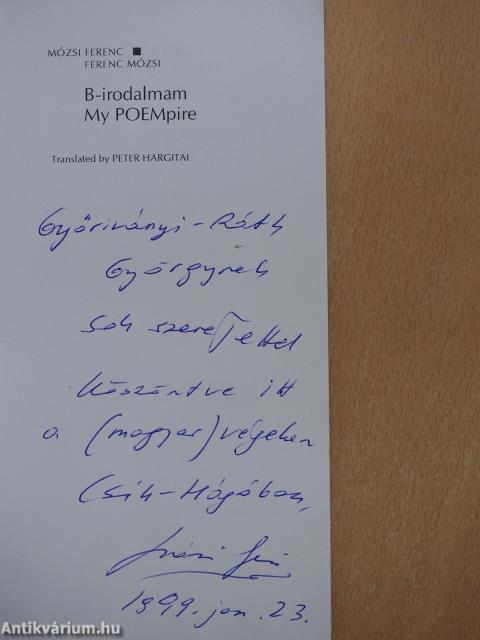 MÓZSI FERENC ■
FERENC MÓZSI
B-irodalmam
My POEMpire
Translated by PETER HARGITAI
Győriványi-Ráth
Györgynek
sok szeretettel
köszöntve itt
a (magyar) végeken
Csik-Hágóban,
1999. jan. 23.
Antikvárium.hu